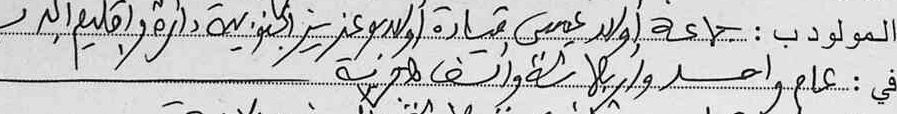 المولود ب: جماعة أولاد عيسى قيادة أولاد بوعزيز الجنوبية دائرة وإقليم الجد
في: عام واحد وأربعمائة وألف هجرية